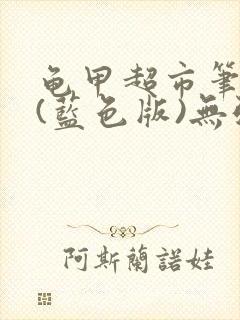 龜甲超市筆
(藍色版)無
阿斯蘭諾娃